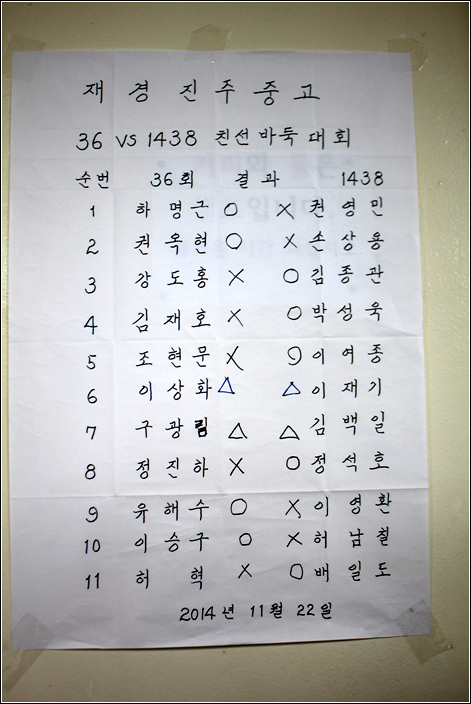 재경진주중고
36 vs 1438 친선바둑대회
순번 36회 결과 1438
1 하명근 ○ × 권영민
2 권옥현 ○ × 손상용
3 강도홍 × ○ 김종관
4 김재호 × ○ 박성욱
5 조현문 × ○ 이여종
6 이상화 △ △ 이재기
7 구광림 △ △ 김백일
8 정진하 × ○ 정석호
9 유해수 ○ × 이영환
10 이승구 ○ × 허남철
11 허혁 × ○ 배일도
2014년 11월 22일